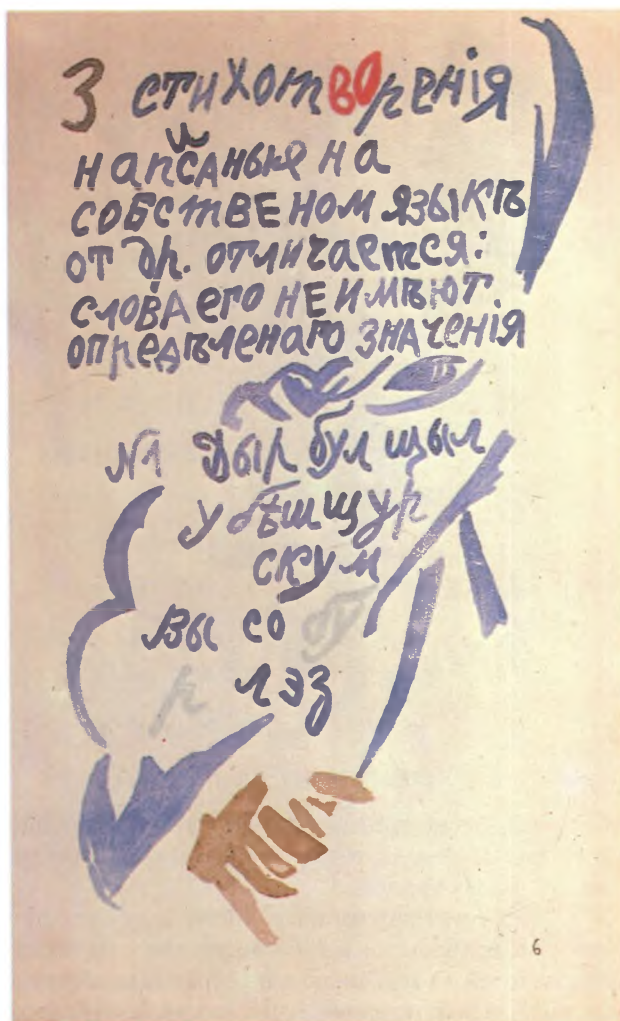 3 стихотворенія
напсанныя на
собственом языкѣ
от др. отличается:
слова его не имѣют
опредѣленаго значенія
№1 Дыр бул щыл
убѣшщур
скум
вы со бу
р лэз
6